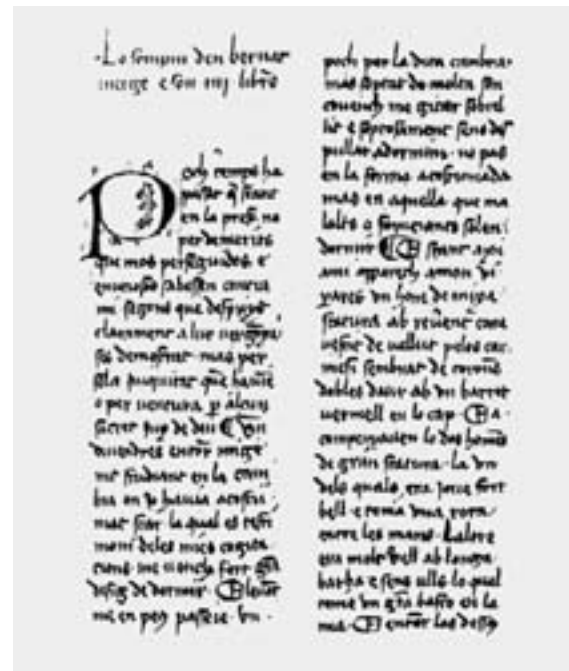 Lo sompni den bernat
metge e son un libre
Poch temps ha
passat q̃ stant
en la preso no
per demerits
que mos perseguidos e
envejosos sabessen contra
mi segons que despuys
clarament a lur vergonya
sia demostrat mas per
sola iniquitat que havien
o per ventura p alcun
secret iuy de deu ¶ Un
divendres entorn mige
nit studiant en la cam
bra on yo havia acostu
mat star la qual es testi
moni deles mies cogita
cions me vench fort gran
desig de dormir ¶ E levat
me en peu passeie un
poch per la dita cambra
mas soptat de molta son
covench me gitar sobrel
lit e soptosament sens des
pullar adormim no pas
en la forma acostumada
mas en aquella que ma
lalts o famejants solen
dormir ¶ E stant axi
ami apparech amon vi
yares un hom de mija
statura ab reverent cara
vestit de vellut pelos car
mesi sembrat de corones
dobles daur ab un barret
vermell en lo cap ¶ E a
companyaven lo dos homens
de gran statura la un
dels quals era jove fort
bell e tenia una rota
entre les mans Laltre
era molt vell ab longa
barba e sens ulls lo qual
tenia un gran basto en la
ma ¶ E entorn los dessus